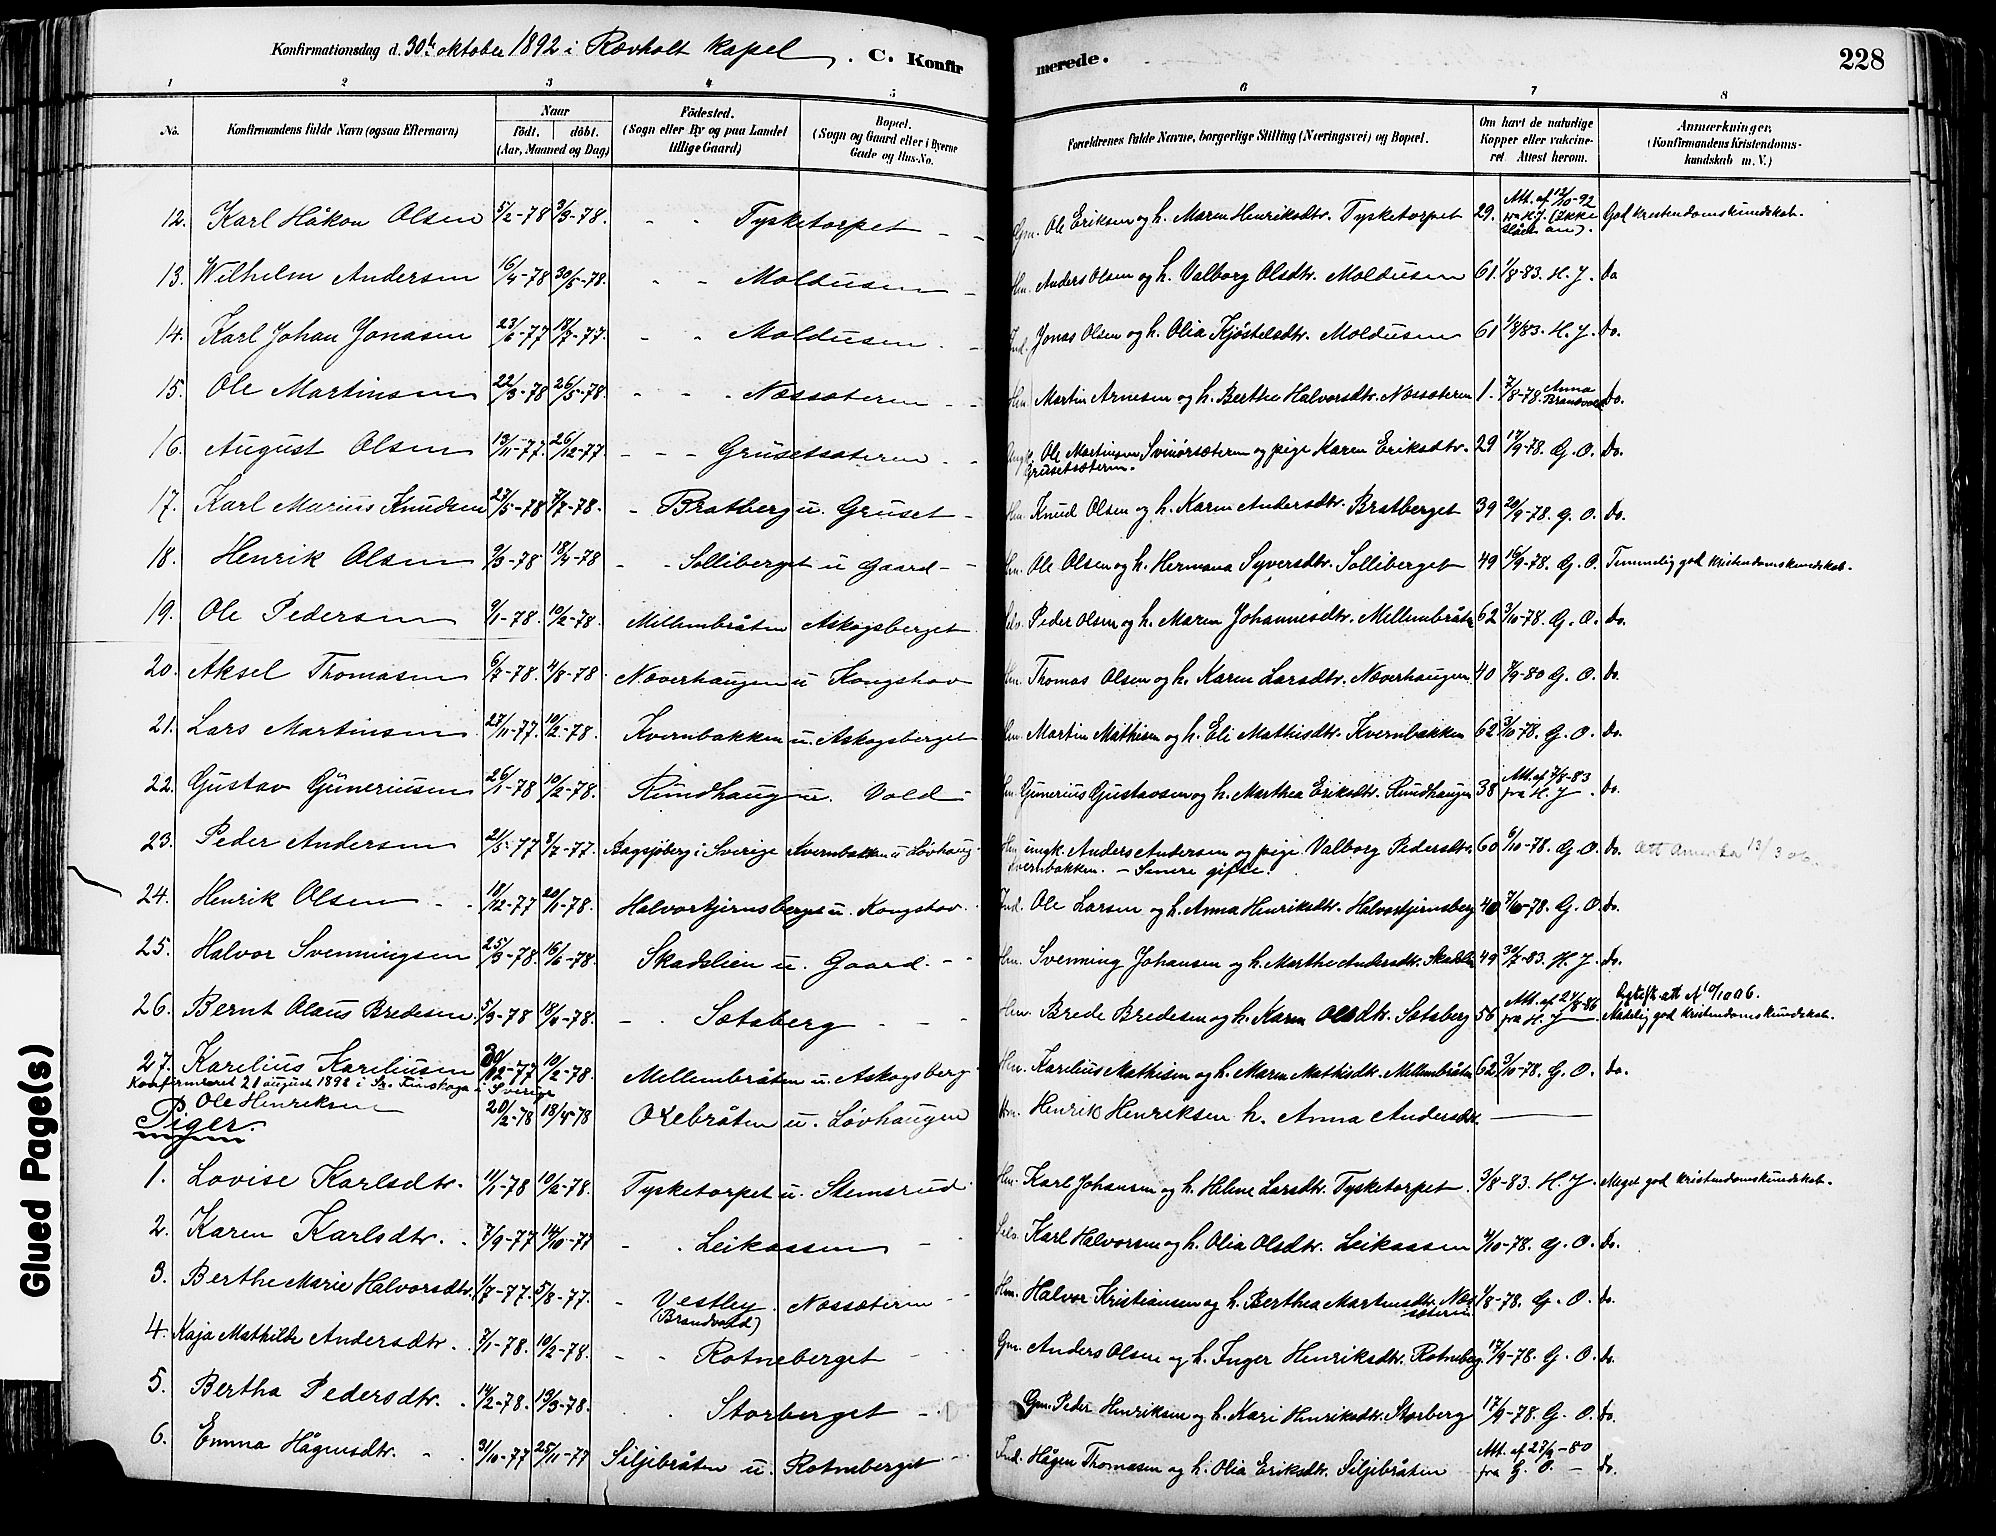 Konfirmationsdag d. 30te oktober 1892 i Rævholt kapel. C. Konfirmerede. 228
1 2 3 4 5 6 7 8
No. Konfirmandens fulde Navn (ogsaa Efternavn) Naar födt. döbt. (Aar, Maaned og Dag) Födested. (Sogn eller By og paa Landet tillige Gaard) Bopæl. (Sogn og Gaard eller i Byerne Gade og Hus-No. Forældrenes fulde Navne, borgerlige Stilling (Næringsvei) og Bopæl. Om havt de naturlige Kopper eller vakcineret Attest herom. Anmærkninger. (Konfirmandens Kristendomskundskab m. V.)
12. Karl Håkon Olsen 5/2-78 3/3-78. - - Tysketorpet - - Gm. Ole Eriksen og h. Maren Henriksdtr. Tysketorpet 29. Att. af 12/10-92 fra H. J. (Ikke slået an). God kristendomskundskab.
13. Wilhelm Andersen 16/4-78 30/5-78. - - Moldusen - Hm. Anders Olsen og h. Valborg Olsdtr. Moldusen 61 1/8-83. H. J. Do
14. Karl Johan Jonasen 23/6-77 18/7-77. - - Moldusen - Ind. Jonas Olsen og h. Olia Kjöstelsdtr. Moldusen 61 1/8/83. H. J. Do.
15. Ole Martinsen 22/3-78 26/5-78. - - - Næssæteren - - Hm Martin Arnesen og h. Berthe Halvorsdtr. Næssæteren 1. 7/8-78. Anna Brandvold Do.
16. August Olsen 13/11-77. 26/12-77 - - - Grusetsæteren - - Ungk. Ole Martinsen Svinörsæteren og pige Karen Eriksdtr. 29 17/9-78. G. O. Do.
Grusetsæteren.
17. Karl Marius Knudsen 27/5-78 7/7-78. - Bratberg u. Gruset - Hm. Knud Olsen og h. Karen Andersdtr. Bratberget 39 20/9-78. G. O. Do.
18. Henrik Olsen 9/3-78 18/4-78 - - Solliberget u Gaard - - Hm. Ole Olsen og h. Hermana Syversdtr. Solliberget 49 16/9-78. G. O. Temmelig god kristendomskundskab.
19. Ole Pedersen 9/1-78. 10/2-78. Mellembråten Askogsberget Selv. Peder Olsen og h. Maren Johannesdtr. Mellembråten 62 3/10-78. G. O. Do.
20. Aksel Thomasen 6/7-78. 4/8-78 Næverhaugen u Kongshov Hm. Thomas Olsen og h. Karen Larsdtr. Næverhaugen 40 /9-80 G. O. Do.
21. Lars Martinsen 27/11-77. 10/2-78. Kvernbakken u. Askogsberget Hm. Martin Mathisen og h. Eli Mathisdtr. Kvernbakken 62 3/10-78. G. O. Do.
22. Gustav Guneriusen 26/1-78 10/2-78. Rundhaug u. Vold - Hm. Gunerius Gustavsen og h. Marthea Eriksdtr. Rundhaugen 38 Att. af 7/8-83 fra H. J. Do.
23. Peder Andersen 21/5-77 8/7-77. Bagsjöberg i Sverige Kvernbakken u Lövhaug Hm ungk. Anders Andersen og pige Valborg Pedersdtr. 60 6/10-78. G. O. Do. Att Amerika 13/3 06.
Kvernbakken. - Senere gifte.
24. Henrik Olsen - - 18/12-77 20/1-78. Halvortjernsberget u. Kongshov. Ind. Ole Larsen og h. Anna Henriksdtr. Halvortjernsberg 40 7/10-78. G. O. Do.
25. Halvor Svenningsen 25/3-78. 16/6-78. Skadslien u. Gaard. - - Hm. Svenning Johansen og h. Marthe Andersdtr. Skadslien 49 30/7-83. H. J. Do.
26. Bernt Olaus Bredesen 5/3-78 18/4-78. - - Sætaberg - - - Hm. Brede Bredesen og h. Karen Olsdtr. Sætaberg 56 Att. af 24/8-86 fra H. J. Nådelig god kristendomskundskab. Bgtsk. att N 10/10 06.
27. Karelius Kareliusen 30/12-77 10/2-78. Mellembråten u. Askogsberg Hm. Karelius Mathisen og h. Maren Mathisdtr. Mellembråten 62 3/10-78. G. O. Do.
Konfirmeret 21 august 1892 i S. Finskoga i Sverige
Ole Henriksen 20/2-78 18/4-78 Oxebråten u. Lövhaugen Hm. Henrik Henriksen h. Anna Andersdtr.
Piger.
1. Lovise Karlsdtr. 11/1-78 10/2-78. Tysketorpet u. Stemsrud Hm. Karl Johansen og h. Helene Larsdtr. Tysketorpet 3/8-83. H. J. Meget god kristendomskundskab.
2. Karen Karlsdtr. - 7/9-77 14/10-77 - - Leikaasen - - Selv. Karl Halvorsen og h. Olia Olsdtr. Leikaasen 4/10-78. G. O. Do.
3. Berthe Marie Halvorsdtr. 1/7-77. 5/8-77. - Vestby (Brandvold) Næssæteren - - Hm. Halvor Kristiansen og h. Berthea Martinsdtr. Næssæteren 1/8-78. G. O. Do.
4. Kaja Mathilde Andersdtr. 7/1-78. 10/2-78. - - Rotneberget - - Gm. Anders Olsen og h. Inger Henriksdtr. Rotneberg 17/9-78. G. O. Do.
5. Bertha Pedersdtr. - 14/2-78. 19/3-78. - - Storberget - - Gm. Peder Henriksen og h. Kari Henriksdtr. Storberg 17/9-78. G. O. Do.
6. Emma Hågensdtr. - - 31/10-77 25/11-77 Siljebråten u. Rotneberget - Ind. Hågen Thomasen og h. Olia Eriksdtr. Siljebråten Att. af 27/9-80 fra G. O. - Do.
Glued Page(s)